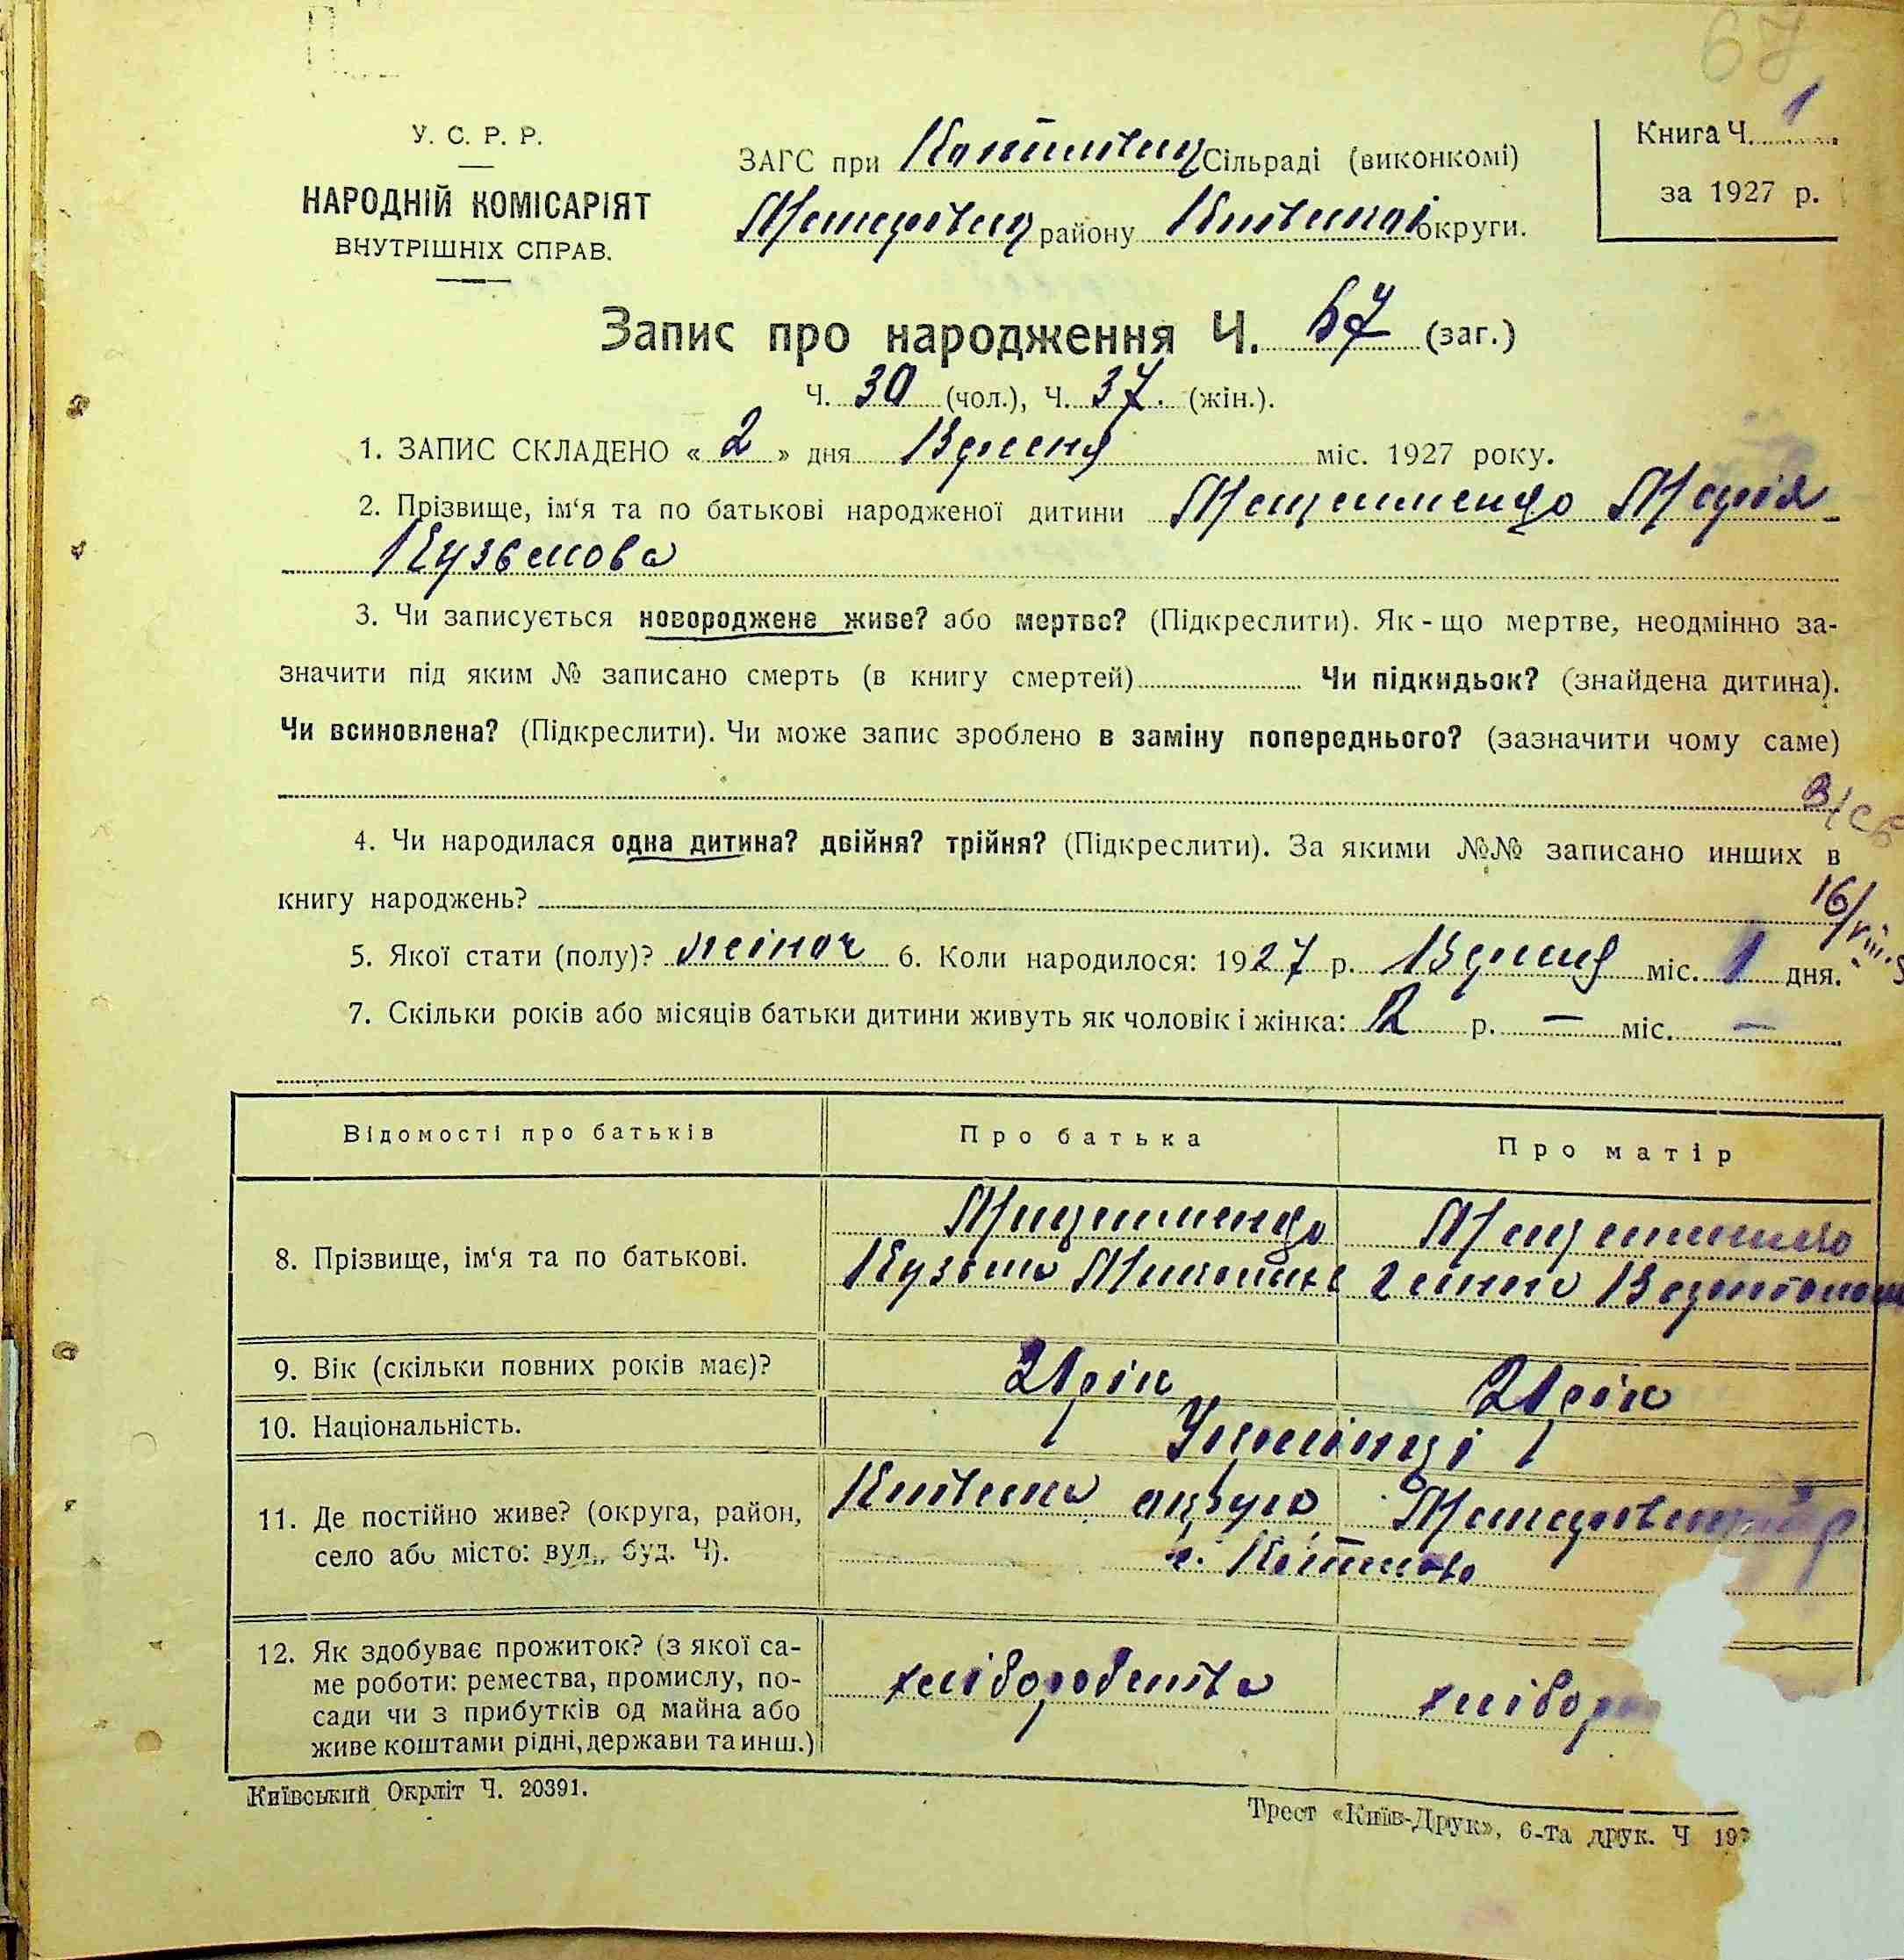 67
У. С. Р. Р.
НАРОДНІЙ КОМІСАРІЯТ
ВНУТРІШНІХ СПРАВ.
ЗАГС при Сільраді (виконкомі)
району округи.
Книга Ч. 1
за 1927 р.
Запис про народження Ч. 67 (заг.)
Ч. 30 (чол.), Ч. 37. (жін.).
1. ЗАПИС СКЛАДЕНО « 2 » дня Вресня міс. 1927 року.
2. Прізвище, ім‘я та по батькові народженої дитини Марія
Кузьмова
3. Чи записується новороджене живе? або мертве? (Підкреслити). Як - що мертве, неодмінно за-
значити під яким № записано смерть (в книгу смертей) Чи підкидьок? (знайдена дитина).
Чи всиновлена? (Підкреслити). Чи може запис зроблено в заміну попереднього? (зазначити чому саме)
4. Чи народилася одна дитина? двійня? трійня? (Підкреслити). За якими №№ записано инших в
книгу народжень?
5. Якої стати (полу)? жіноч 6. Коли народилося: 1927 р. Вресня міс. 1 дня.
7. Скільки років або місяців батьки дитини живуть як чоловік і жінка: 2 р. — міс. —
Відомості про батьків Про батька Про матір
8. Прізвище, ім‘я та по батькові.
Кузьма
9. Вік (скільки повних років має)? 21 рік 21 рік
10. Національність. Україінці
11. Де постійно живе? (округа, район,
село або місто: вул., буд. Ч).
Київска округа
с.
12. Як здобуває прожиток? (з якої са-
ме роботи: ремества, промислу, по-
сади чи з прибутків од майна або
живе коштами рідні, держави та инш.)
хліборобства хлібор
Київський Окрліт Ч. 20391.
Трест «Київ-Друк», 6-та друк. Ч